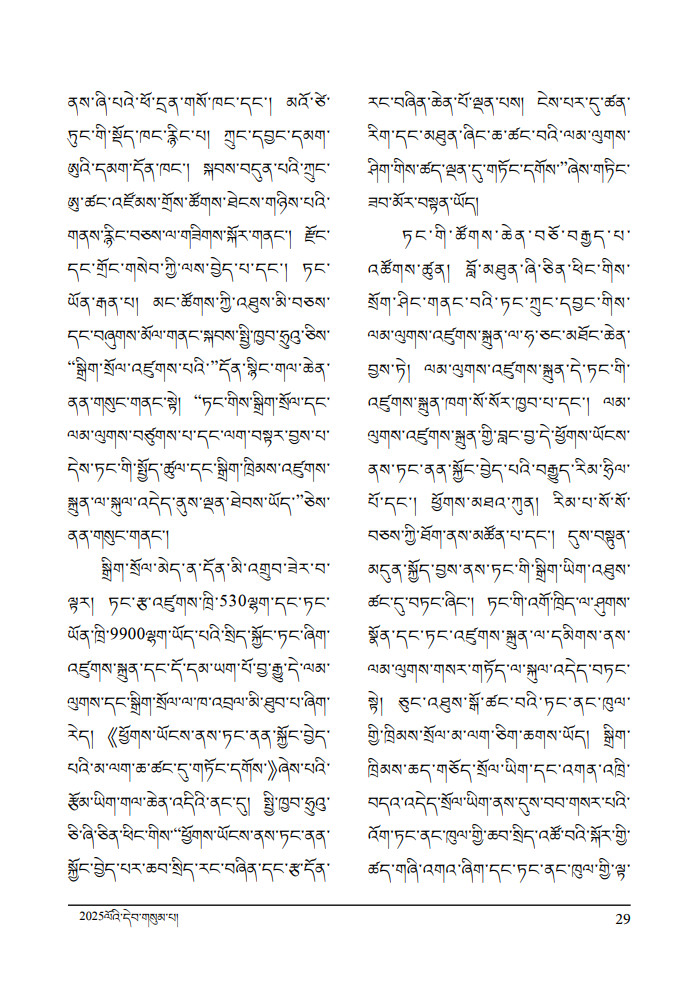 ནས་ཞི་པའི་ཕོ་དྲན་གསོ་ཁང་དང་། མའོ་ཙེ་
ཏུང་གི་སྡོད་ཁང་རྙིང་པ། ཀྲུང་དབྱང་དམག་
ཨུའི་དམག་དོན་ཁང་། སྐབས་བདུན་པའི་ཀྲུང་
ཨུ་ཚང་འཛོམས་གྲོས་ཚོགས་ཐེངས་གཉིས་པའི་
གནས་རྙིང་བཅས་ལ་གཟིགས་སྐོར་གནང་། རྫོང་
དང་གྲོང་གསེབ་ཀྱི་ལས་བྱེད་པ་དང་། ཏང་
ཡོན་རྒན་པ། མང་ཚོགས་ཀྱི་འཐུས་མི་བཅས་
དང་བཞུགས་མོལ་གནང་སྐབས་སྤྱི་ཁྱབ་ཧྲུའུ་ཅིས་
“སྒྲིག་སྲོལ་འཛུགས་པའི་”དོན་སྙིང་གལ་ཆེན་
ནན་གསུང་གནང་སྟེ། “ཏང་གིས་སྒྲིག་སྲོལ་དང་
ལམ་ལུགས་བཙུགས་པ་དང་ལག་བསྟར་བྱས་པ་
དེས་ཏང་གི་སྤྱོད་ཚུལ་དང་སྒྲིག་ཁྲིམས་འཛུགས་
སྐྲུན་ལ་སྐུལ་འདེད་ནུས་ལྡན་ཐེབས་ཡོད་”ཅེས་
ནན་གསུང་གནང་།
སྒྲིག་སྲོལ་མེད་ན་དོན་མི་འགྲུབ་ཟེར་བ་
ལྟར། ཏང་རྩ་འཛུགས་ཁྲི་530ལྷག་དང་ཏང་
ཡོན་ཁྲི་9900ལྷག་ཡོད་པའི་སྲིད་སྐྱོང་ཏང་ཞིག་
འཛུགས་སྐྲུན་དང་དོ་དམ་ཡག་པོ་བྱ་རྒྱུ་དེ་ལམ་
ལུགས་དང་སྒྲིག་སྲོལ་ལ་ཁ་འབྲལ་མི་ཐུབ་པ་ཞིག་
རེད། 《ཕྱོགས་ཡོངས་ནས་ཏང་ནན་སྐྱོང་བྱེད་
པའི་མ་ལག་ཆ་ཚང་དུ་གཏོང་དགོས་》ཞེས་པའི་
རྩོམ་ཡིག་གལ་ཆེན་འདིའི་ནང་དུ། སྤྱི་ཁྱབ་ཧྲུའུ་
ཅི་ཞི་ཅིན་ཕིང་གིས་“ཕྱོགས་ཡོངས་ནས་ཏང་ནན་
སྐྱོང་བྱེད་པར་ཆབ་སྲིད་རང་བཞིན་དང་རྩ་དོན་
རང་བཞིན་ཆེན་པོ་ལྡན་པས། ངེས་པར་དུ་ཚན་
རིག་དང་མཐུན་ཞིང་ཆ་ཚང་བའི་ལམ་ལུགས་
ཤིག་གིས་ཚད་ལྡན་དུ་གཏོང་དགོས་”ཞེས་གཏིང་
ཟབ་མོར་བསྟན་ཡོད།
ཏང་གི་ཚོགས་ཆེན་བཅོ་བརྒྱད་པ་
འཚོགས་ཚུན། བློ་མཐུན་ཞི་ཅིན་ཕིང་གིས་
སྲོག་ཤིང་གནང་བའི་ཏང་ཀྲུང་དབྱང་གིས་
ལམ་ལུགས་འཛུགས་སྐྲུན་ལ་ཧ་ཅང་མཐོང་ཆེན་
བྱས་ཏེ། ལམ་ལུགས་འཛུགས་སྐྲུན་དེ་ཏང་གི་
འཛུགས་སྐྲུན་ཁག་སོ་སོར་ཁྱབ་པ་དང་། ལམ་
ལུགས་འཛུགས་སྐྲུན་གྱི་བླང་བྱ་དེ་ཕྱོགས་ཡོངས་
ནས་ཏང་ནན་སྐྱོང་བྱེད་པའི་བརྒྱུད་རིམ་ཧྲིལ་
པོ་དང་། ཕྱོགས་མཐའ་ཀུན། རིམ་པ་སོ་སོ་
བཅས་ཀྱི་ཐོག་ནས་མཚོན་པ་དང་། དུས་བསྟུན་
མདུན་སྐྱོད་བྱས་ནས་ཏང་གི་སྒྲིག་ཡིག་འཐུས་
ཚང་དུ་བཏང་ཞིང་། ཏང་གི་འགོ་ཁྲིད་ལ་ཤུགས་
སྣོན་དང་ཏང་འཛུགས་སྐྲུན་ལ་དམིགས་ནས་
ལམ་ལུགས་གསར་གཏོད་ལ་སྐུལ་འདེད་བཏང་
སྟེ། ཅུང་འཐུས་སྒོ་ཚང་བའི་ཏང་ནང་ཁུལ་
གྱི་ཁྲིམས་སྲོལ་མ་ལག་ཅིག་ཆགས་ཡོད། སྒྲིག་
ཁྲིམས་ཆད་གཅོད་སྲོལ་ཡིག་དང་འགན་འཁྲི་
བདའ་འདེད་སྲོལ་ཡིག་ནས་དུས་བབ་གསར་པའི་
འོག་ཏང་ནང་ཁུལ་གྱི་ཆབ་སྲིད་འཚོ་བའི་སྐོར་གྱི་
ཚད་གཞི་འགའ་ཞིག་དང་ཏང་ནང་ཁུལ་གྱི་ལྟ་
2025ལོའི་དེབ་གསུམ་པ།
29